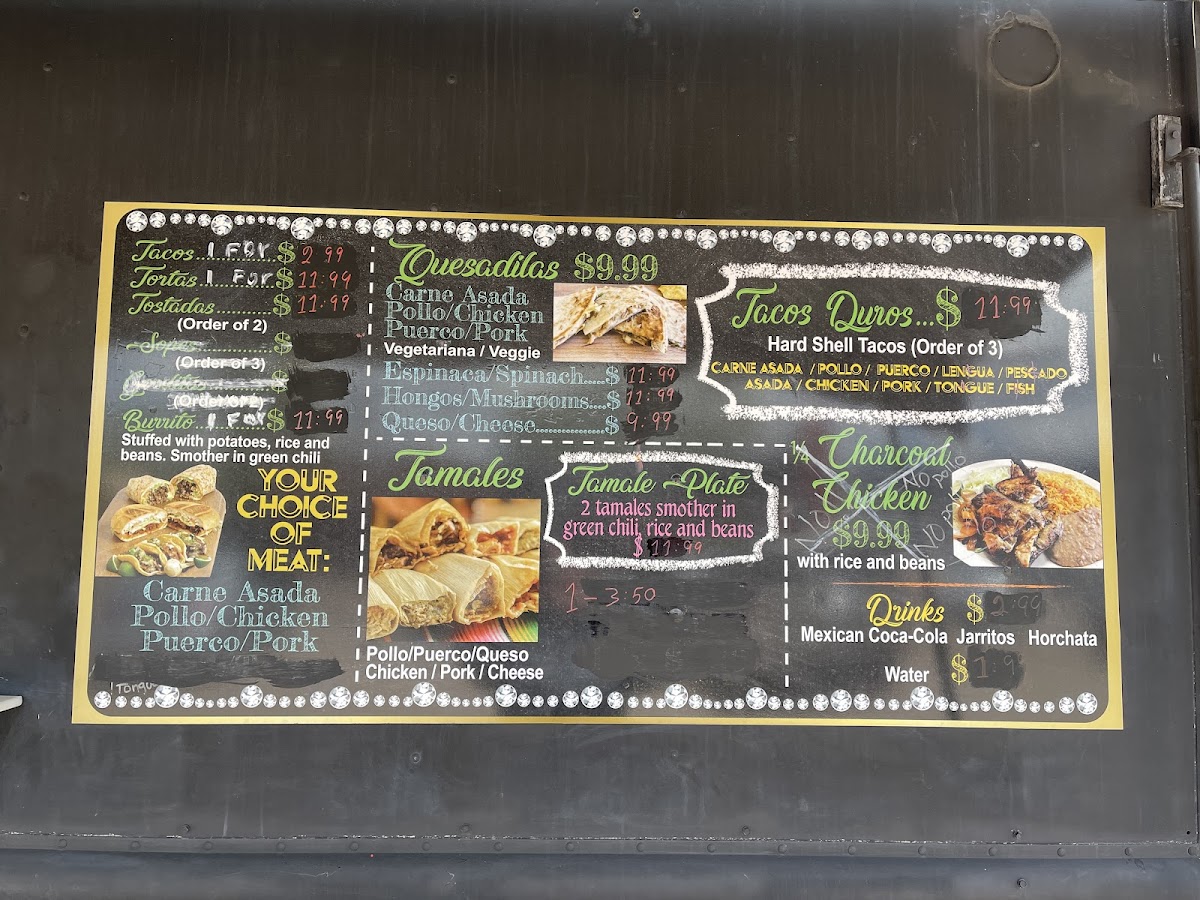 Tacos 1 FOR $ 2 99
Tortas 1 FOR $ 11:99
Tostadas.............$ 11:99
(Order of 2)
Sopes.............$
(Order of 3)
(Order of 2)
Burrito 1 FOR $ 11:99
Stuffed with potatoes, rice and
beans. Smother in green chili
YOUR
CHOICE
OF
MEAT:
Carne Asada
Pollo/Chicken
Puerco/Pork
Quesadilas $9.99
Carne Asada
Pollo/Chicken
Puerco/Pork
Vegetariana / Veggie
Espinaca/Spinach.....$ 11:99
Hongos/Mushrooms....$ 11:99
Queso/Cheese.................$ 9:99
Tamales
Pollo/Puerco/Queso
Chicken / Pork / Cheese
Tamale Plate
2 tamales smother in
green chili, rice and beans
$ 11:99
1 - 3:50
Tacos Duros...$ 11:99
Hard Shell Tacos (Order of 3)
CARNE ASADA / POLLO / PUERCO / LENGUA / PESCADO
ASADA / CHICKEN / PORK / TONGUE / FISH
¼ Charcoal
Chicken
$9.99
NO
NO Pollo
NO
with rice and beans
Drinks $ 2:99
Mexican Coca-Cola Jarritos Horchata
Water $1.9